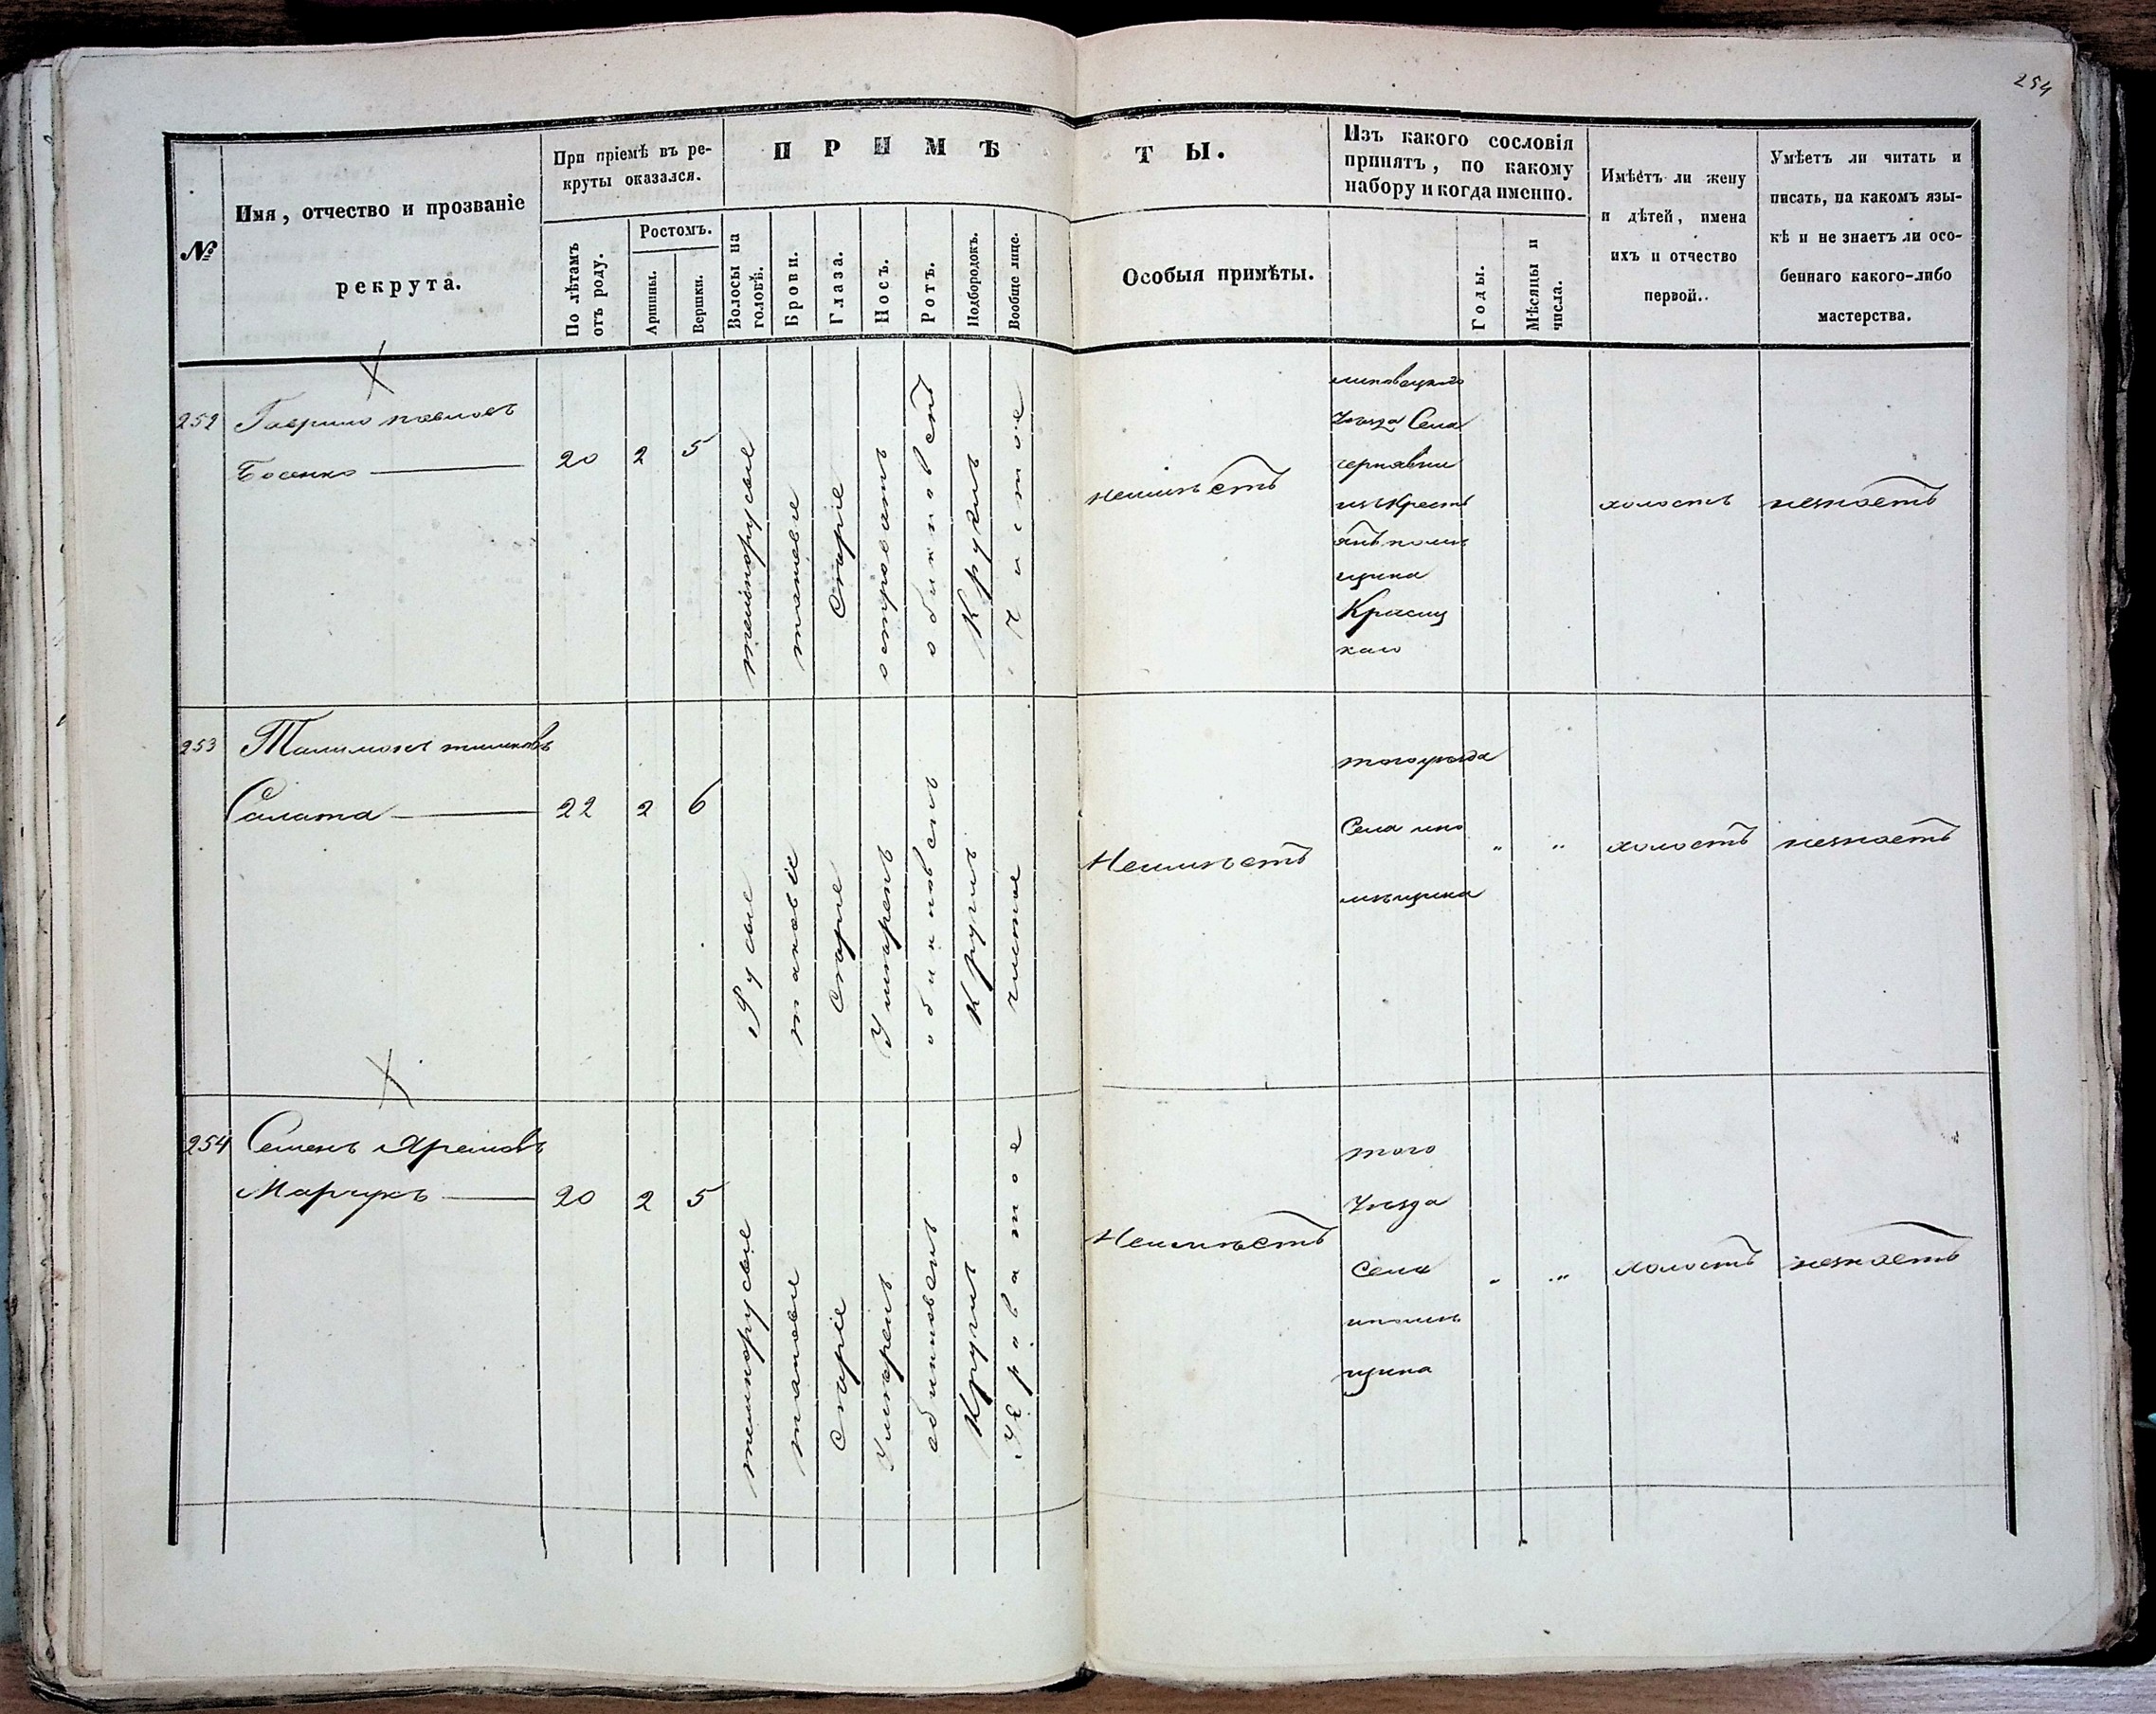 254
№
Имя, отчество и прозваніе
рекрута.
При пріемѣ въ ре-
круты оказался.
По лѣтамъ
отъ роду.
Ростомъ.
Аршины.
Вершки.
ПРИМѢТЫ.
Волосы на
головѣ.
Брови.
Глаза.
Носъ.
Ротъ.
Подбородокъ.
Вообще лице.
Особыя примѣты.
Изъ какого сословія
принятъ, по какому
набору и когда именно.
Годы.
Мѣсяцы и
числа.
Имѣетъ ли жену
и дѣтей, имена
ихъ и отчество
первой.
Умѣетъ ли читать и
писать, на какомъ язы-
кѣ и не знаетъ ли осо-
беннаго какого-либо
мастерства.
252
Гаврило павловъ
Босенко
20
2
5
темнорусые
таковые
Сѣрые
островатъ
обикновенъ
Круглъ
Чистое
неимѣетъ
Уѣзда Села
изъ Крестъ
янъ помѣ
щика
Красиц
каго
холостъ
незнаетъ
253
Салата
22
2
6
Русые
таковіе
Сѣрые
Умѣренъ
обикновенъ
Круглъ
чистое
Неимѣетъ
тогоуѣзда
Села
мѣщика
"
"
холостъ
незнаетъ
254
Семенъ Яремовъ
Марчукъ
20
2
5
темнорусые
таковые
Сѣрые
Умѣренъ
обикновенъ
Круглъ
Неимѣетъ
того
Уѣзда
Села
щика
"
"
холостъ
незнаетъ